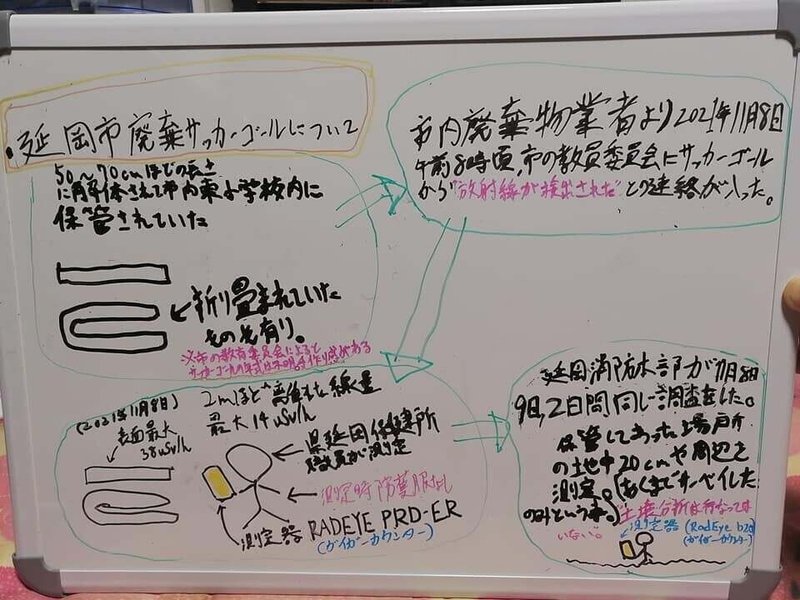 ・延岡市廃棄サッカーゴールについて
50〜70cmほどの長さ
に解体されて市内東小学校内に
保管されていた
←折り畳まれていた
もの有り。
教育委員会によると
サッカーゴールの年式は不明
市内廃棄物業者より2021年11月8日
午前8時頃、市の教員委員会にサッカーゴール
から"放射線が検出された"との連絡が入った。
(2021年11月8日)
表面最大
38uSv/h
2mほど離れた線量
最大14uSv/h
県延岡保健所
職員が測定
測定時防護服なし
測定器 RADEYE PRD-ER
(ガイガーカウンター)
延岡消防本部が11月8日
9日、2日間、同じ調査をした。
保管してあった場所
の土地中20cmや周辺を
測定。(あくまでサーベイした
のみという事。)土壌分析は行なっては
いない。
測定器 (RadEye b20
(ガイガーカウンター)